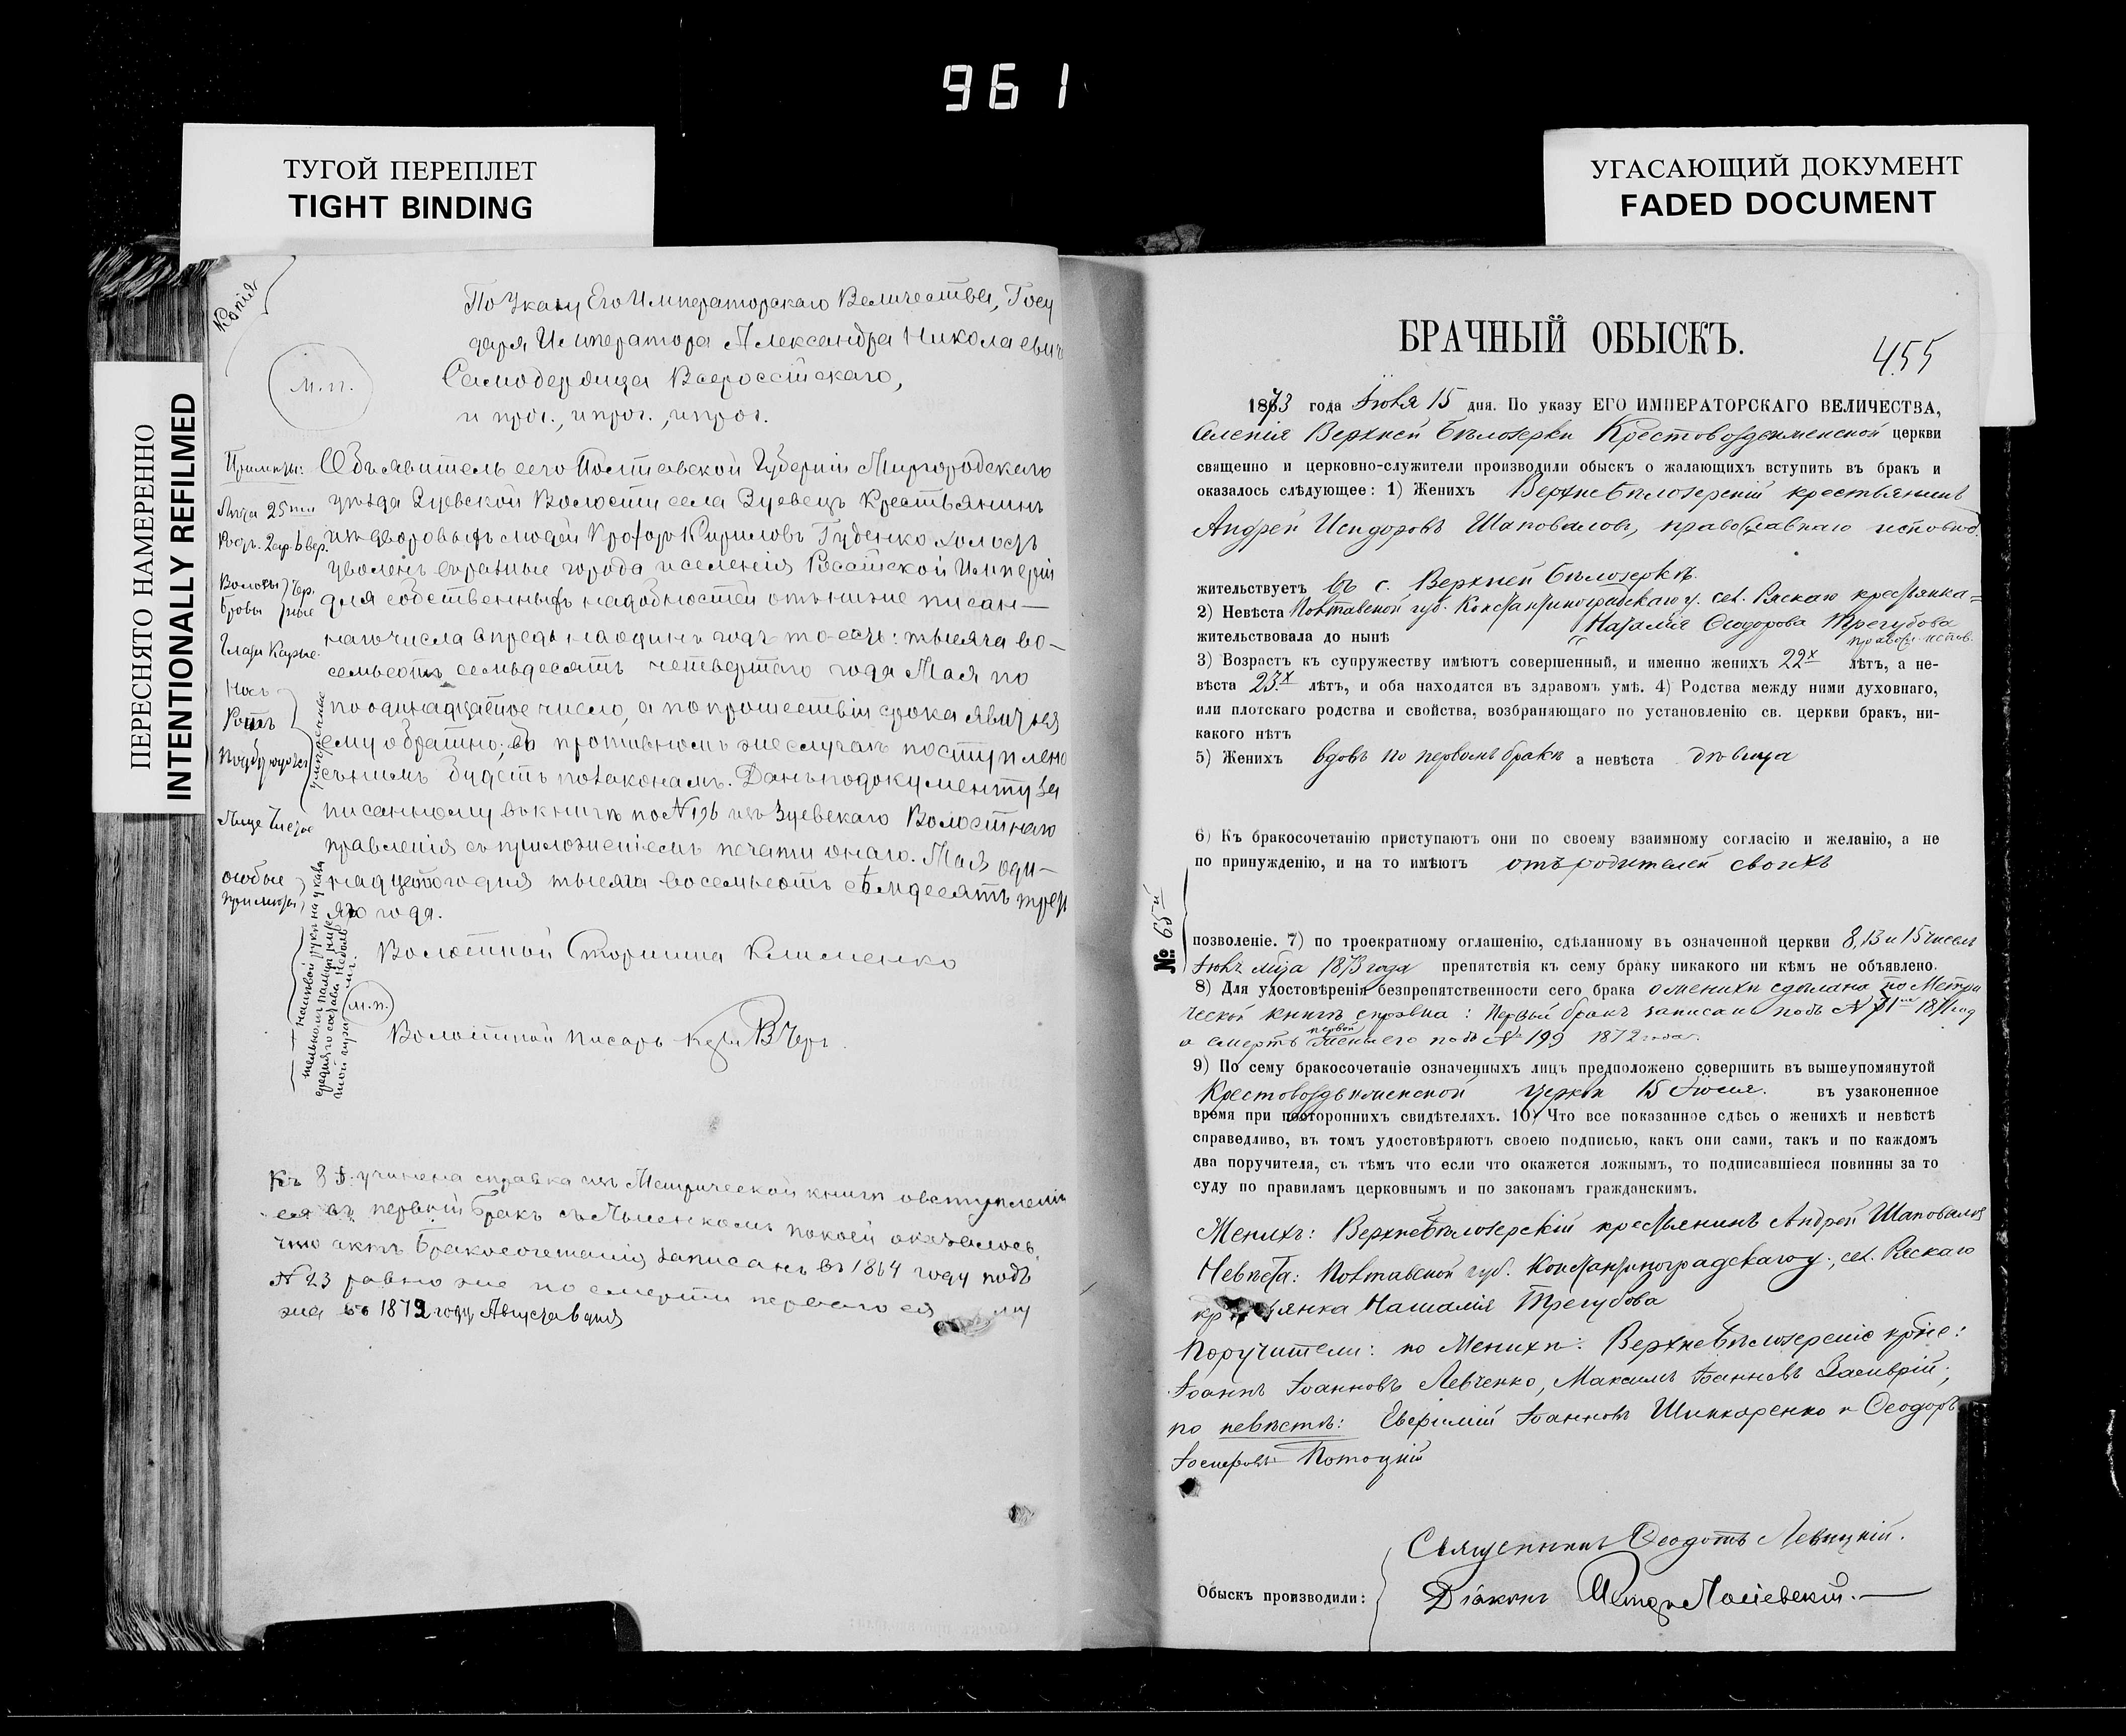 961
ТУГОЙ ПЕРЕПЛЕТ
TIGHT BINDING
УГАСАЮЩИЙ ДОКУМЕНТ
FADED DOCUMENT
ПЕРЕСНЯТО НАМЕРЕННО
INTENTIONALLY REFILMED
Копія
По Указу Его Императорскаго Величества, Госу
даря Императора Александра Николаевич
Самодержца Всероссійскаго,
и проч., и проч., и проч.
М.п.
Примѣты:
Лѣта 25ти
Росъ. 2 ар. 6 вер.
Волосы
Брови
Глаза Карые
Носъ
Ротъ
Подбородокъ
умѣренные
Лице Чистое
особые
примѣты
Объявитель сего Полтавской Губерніи Миргородскаго
уѣзда Зуевской Волости села Зуевецъ Крестьянинъ
изъ дворовыхъ людей Прохоръ Кириловъ Губенко холостъ
уволенъ въ разные города и селенія Російской Имперіи
для собственныхъ надобностей отъ ниже писан—
наго числа впредь на одинъ годъ то есть: тысяча во—
семьсотъ семьдесятъ четвертаго года Мая по
по одинадцатое число, а по прошествіи срока явиться
ему обратно; въ противномъ же случаѣ поступлено
съ нимъ будетъ по законамъ. Данъ по документу за
писанному въ книгѣ по № 196 изъ Зуевскаго Волостнаго
правленія съ приложеніемъ печати онаго. Мая оди—
надцатого дня тысяча восемьсотъ семдесятъ треть
яго года.
Волостной Старшина Клименко
М.п.
Волостной писарь
Къ 8 учинена справка изъ Метрической книги о вступленіи
ея въ первый бракъ съ по коей оказалось,
что актъ бракосочетанія записанъ въ 1864 году подъ
№ 23 равно же по смерти перваго ея му
жа въ 1872 году Августа 6 дня
БРАЧНЫЙ ОБЫСКЪ.
455
1873 года Іюля 15 дня. По указу ЕГО ИМПЕРАТОРСКАГО ВЕЛИЧЕСТВА,
Селенія Верхней Бѣлозерки Крестовоздвиженской церкви
священно и церковно-служители производили обыскъ о жалающихъ вступить въ бракъ и
оказалось слѣдующее: 1) Женихъ Верхнебѣлозерскій крестьянинъ
Андрей Исидоровъ Шаповаловъ, православнаго исповѣд.
жительствуетъ въ с. Верхней Бѣлозеркѣ.
2) Невѣста Полтавской губ. Константиноградскаго у. сел. Ряскаго крестьянка=
жительствовала до нынѣ Наталія Ѳеодорова Трегубова
правосл. испов.
3) Возрастъ къ супружеству имѣютъ совершенный, и именно женихъ 22х лѣтъ, а не-
вѣста 23х лѣтъ, и оба находятся въ здравомъ умѣ. 4) Родства между ними духовнаго,
или плотскаго родства и свойства, возбраняющаго по установленію св. церкви бракъ, ни-
какого нѣтъ
5) Женихъ вдовъ по первомъ бракѣ а невѣста дѣвица
6) Къ бракосочетанію приступаютъ они по своему взаимному согласію и желанію, а не
по принужденію, и на то имѣютъ отъ родителей своихъ
№ 65й
позволеніе. 7) по троекратному оглашенію, сдѣланному въ означенной церкви 8, 13 и 15 чиселъ
Іюля м҃ца 1873 года препятствія къ сему браку никакого ни кѣмъ не объявлено.
8) Для удостовѣренія безпрепятственности сего брака о женихѣ сдѣлана по Метри
ческой книгѣ справка: Первый бракъ записанъ подъ № 1871 год
а смерть первой жены его подъ № 199 1872 года.
9) По сему бракосочетаніе означенныхъ лицъ предположено совершить въ вышеупомянутой
Крестовоздвиженской церкви 15 Іюля. въ узаконенное
время при постороннихъ свидѣтеляхъ. 10) Что все показанное сдѣсь о женихѣ и невѣстѣ
справедливо, въ томъ удостовѣряютъ своею подписью, какъ они сами, такъ и по каждомъ
два поручителя, съ тѣмъ что если что окажется ложнымъ, то подписавшіеся повинны за то
суду по правиламъ церковнымъ и по законамъ гражданскимъ.
Женихъ: Верхнебѣлозерскій крестьянинъ Андрей Шаповаловъ
Невѣста: Полтавской губ. Константиноградскаго у., сел. Ряскаго
крестьянка Наталія Трегубова
Поручители: по Женихѣ: Верхнебѣлозерскіе кр҃не:
Іоаннъ Іоанновъ Левченко, Максимъ Іоанновъ
по невѣстѣ: Евфимій Іоанновъ Шинкаренко и Ѳеодоръ
Іосифовъ Потоцкій
Священникъ Ѳеодотъ Левицкій.
Обыскъ производили:
Діаконъ Петръ